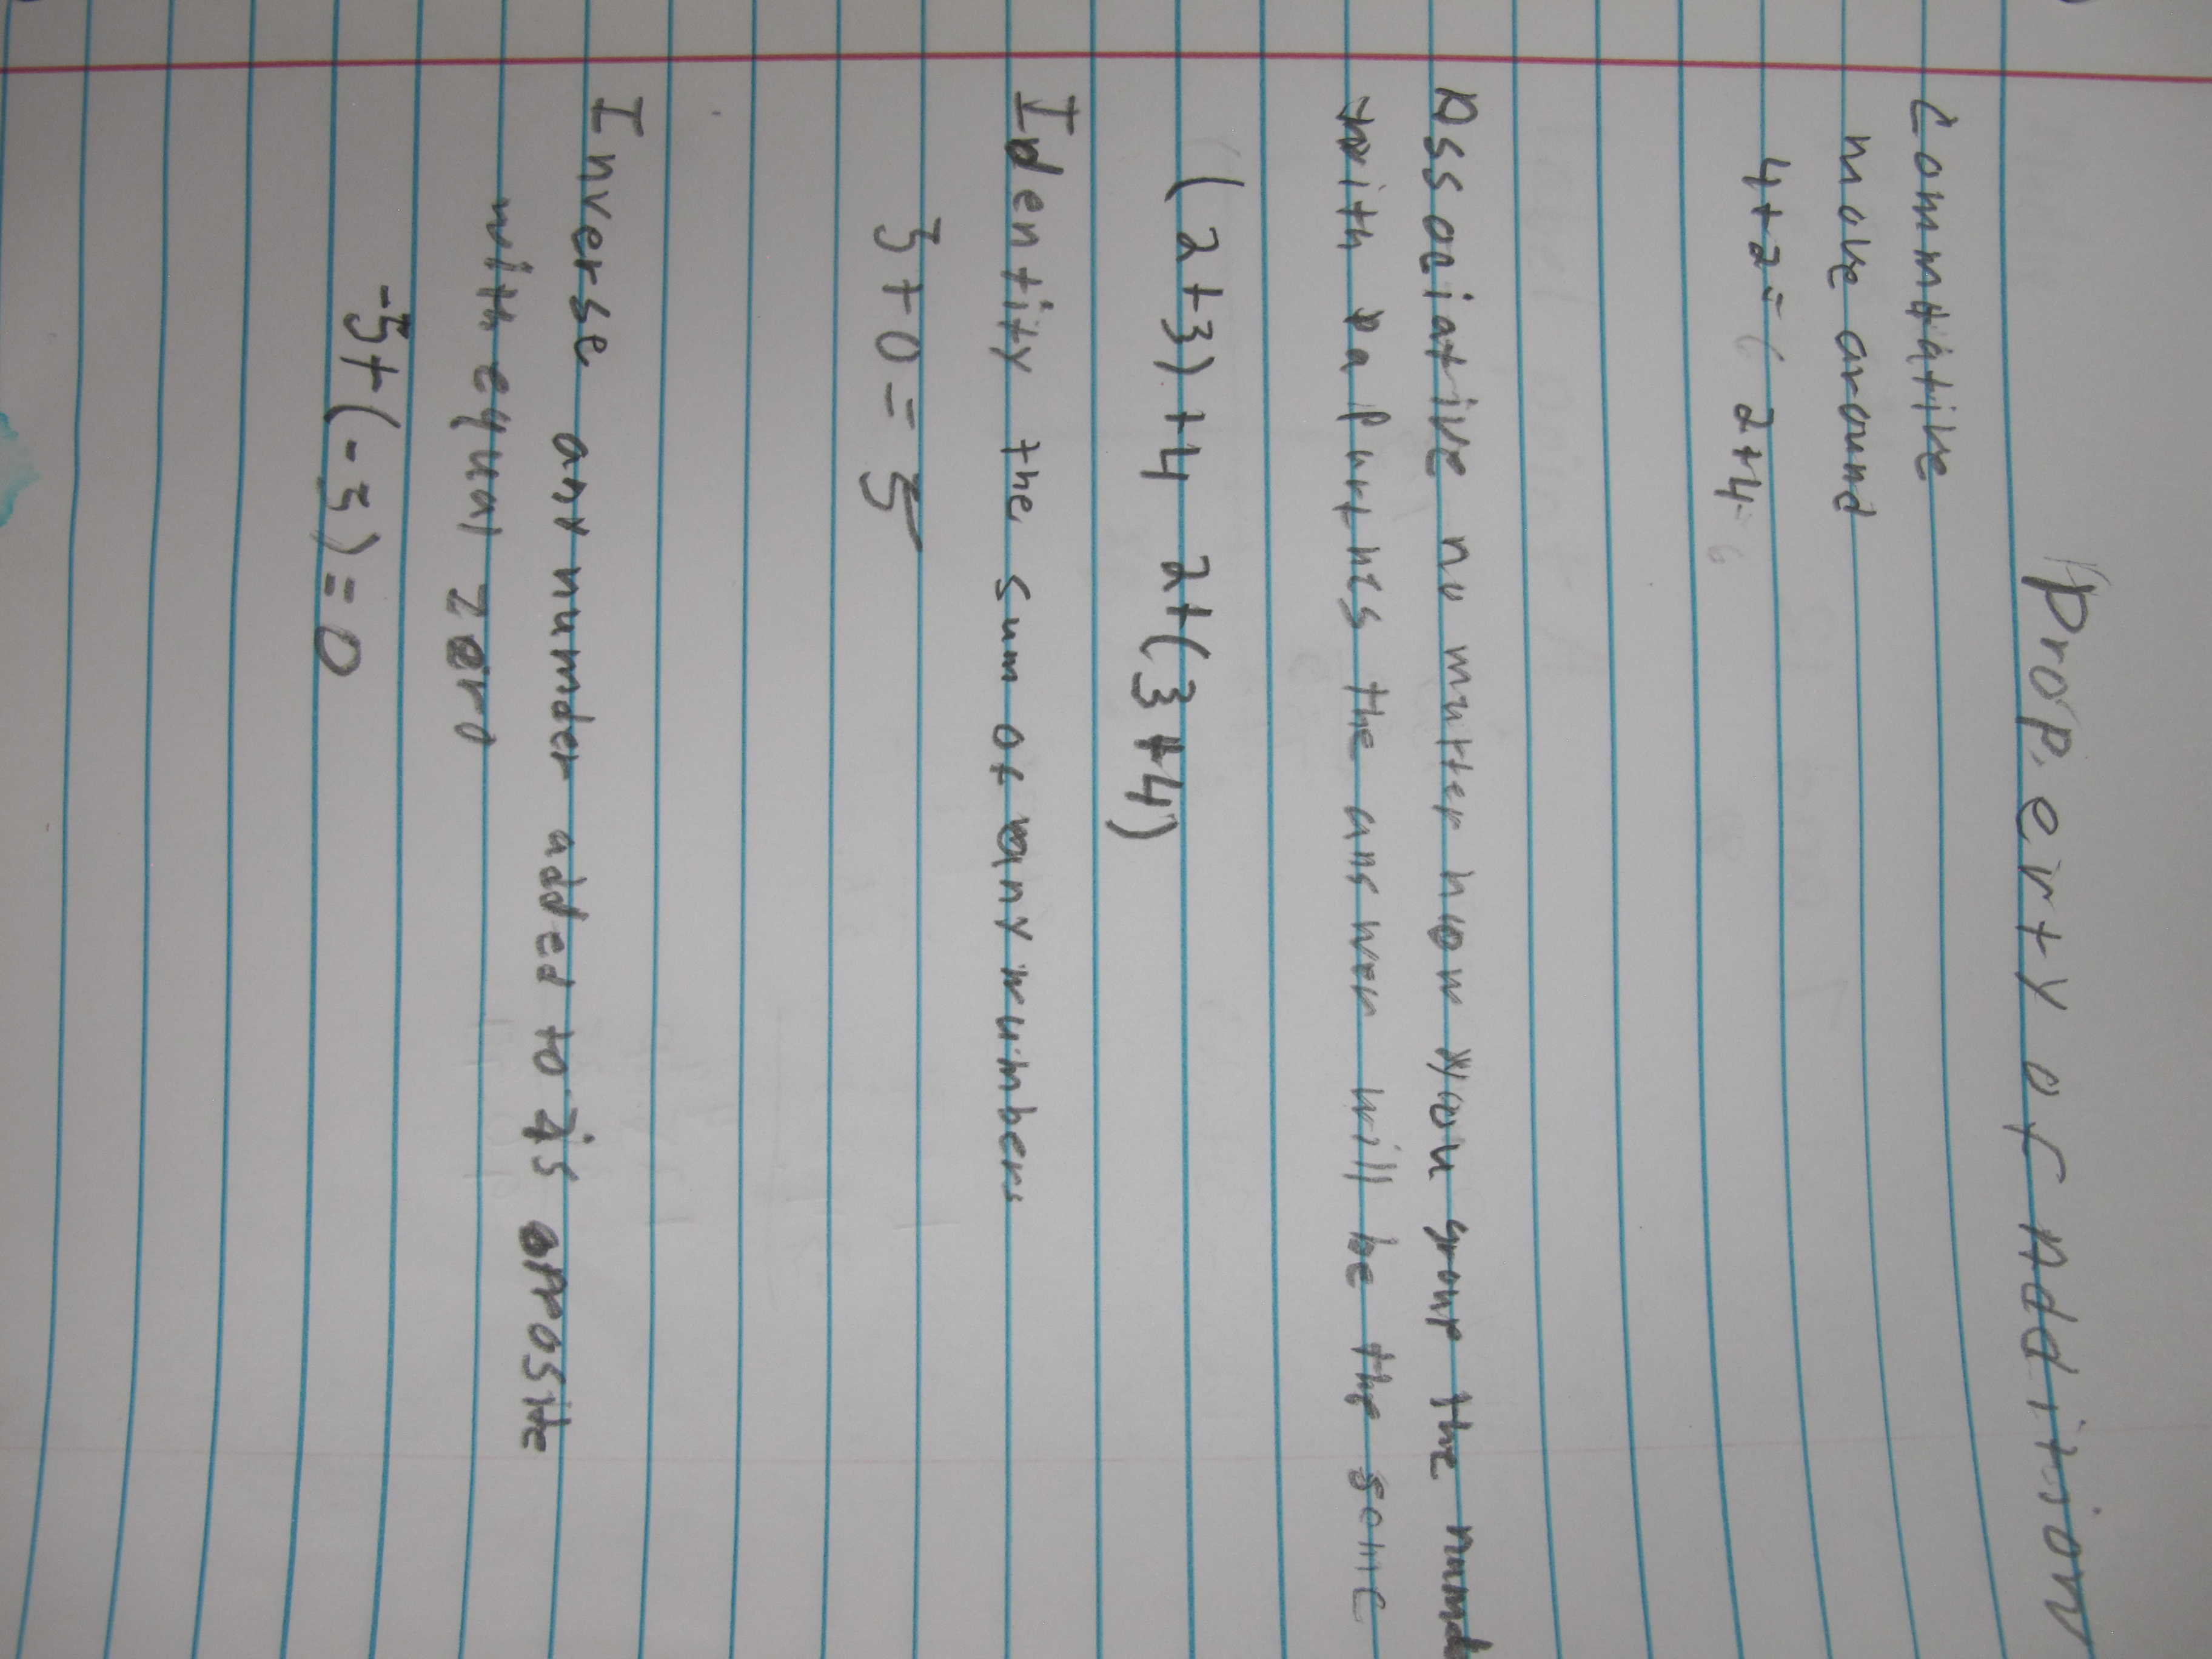 Property of Addition
Commutative
move around
4+2=6 2+4=6
Associative no mutter how you group the numb
with parthes the answer will be the same
(2+3)+4 2+(3+4)
Identity the sum of any numbers
3+0=5
Inverse any number added to is oposite
with equal zero
-3+(-3)=0